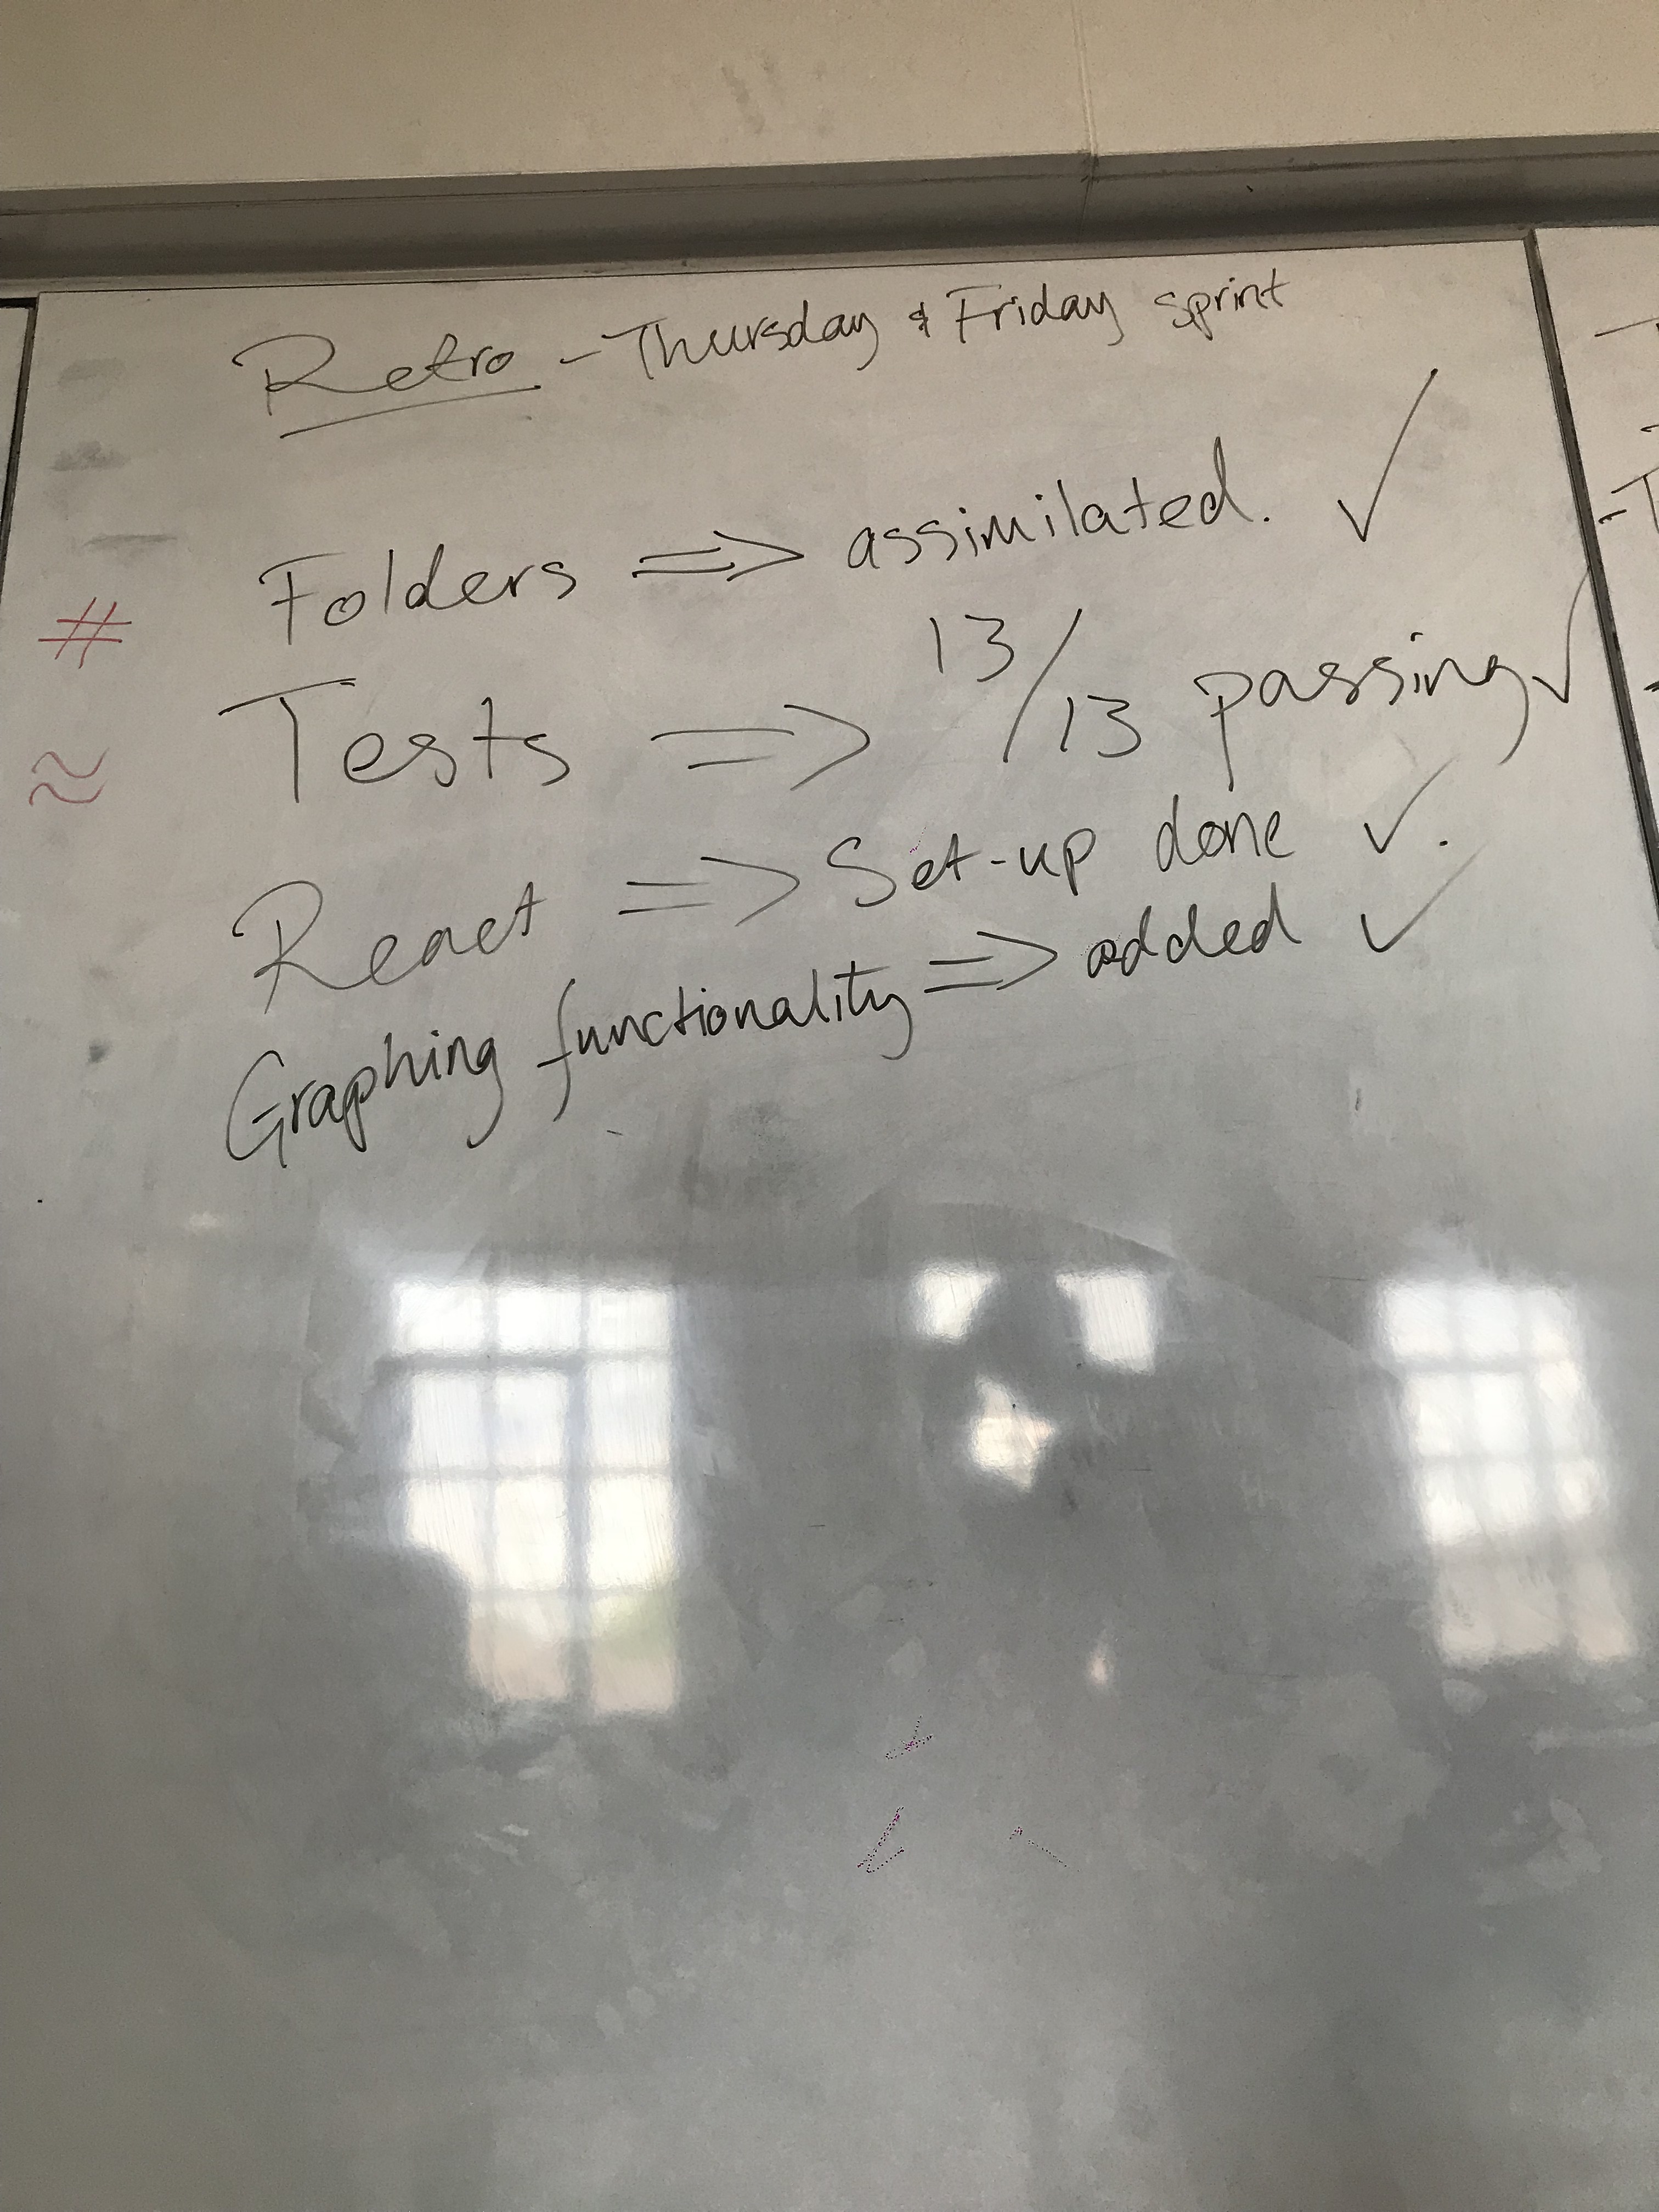 Retro - Thursday & Friday sprint
# Folders => assimilated. ✓
≈ Tests => 13/13 passing ✓
React => Set-up done ✓.
Graphing functionality => added ✓